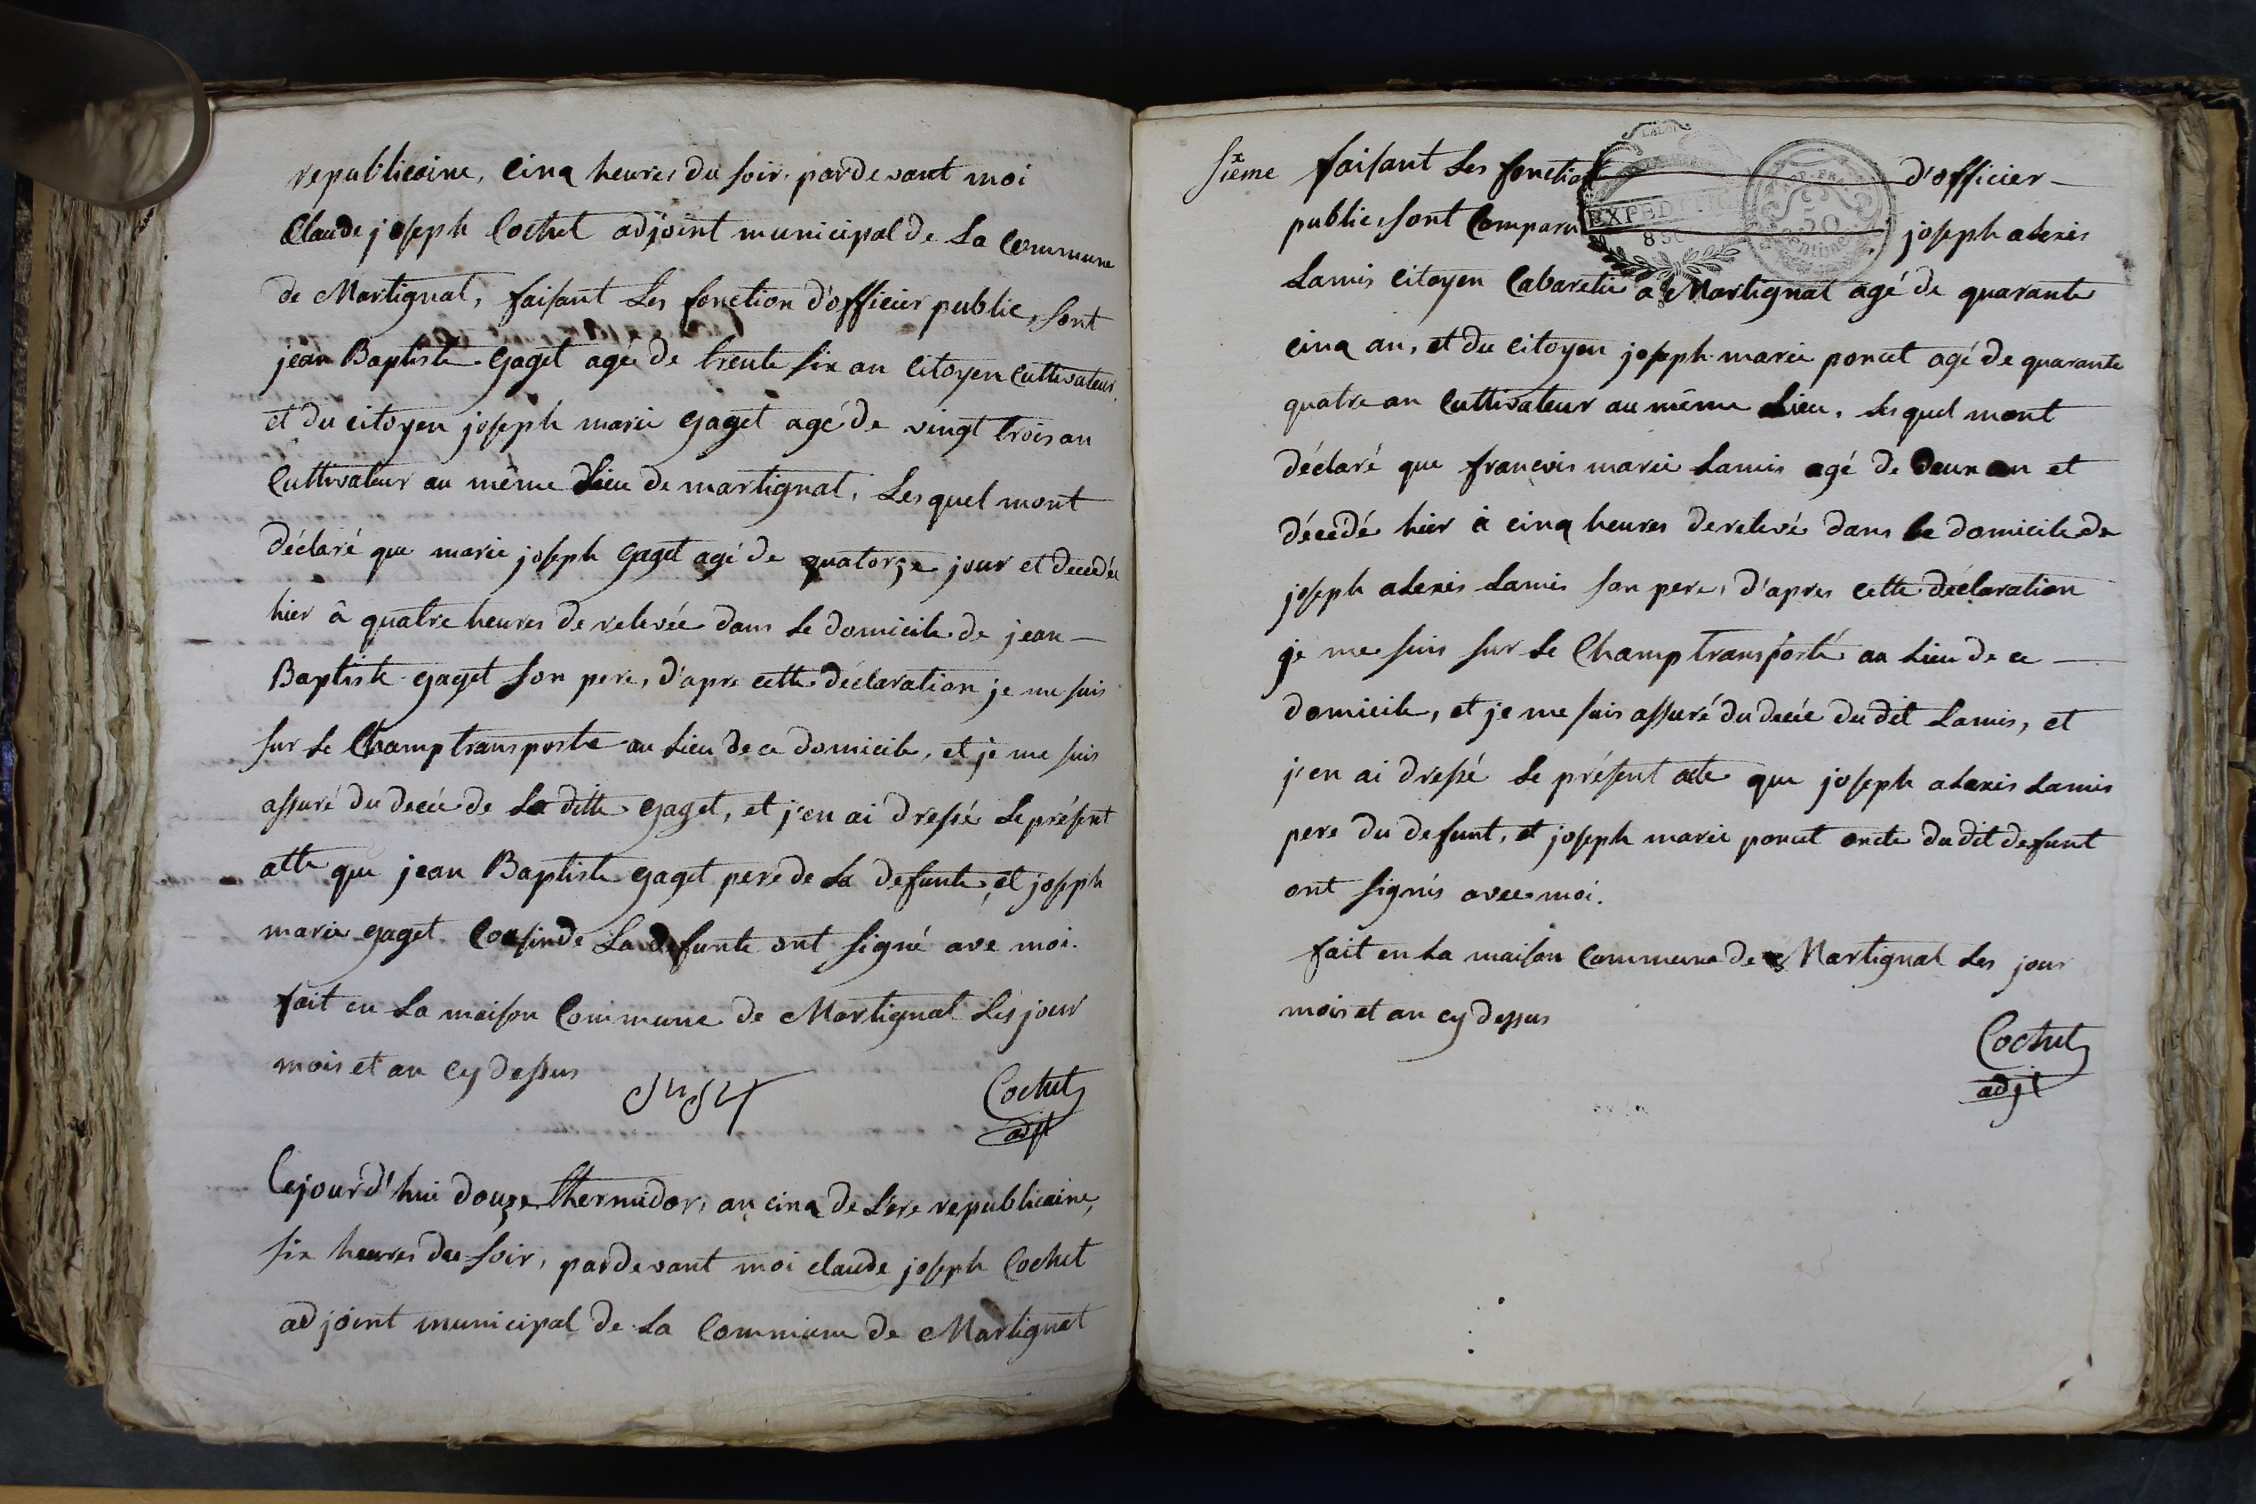 republicaine, cinq heures du soir, pardevant moi
Claude joseph Cochet adjoint municipal de La Commune
de Martignat, faisant Les fonction d'officier public, sont
jean Baptiste gaget agé de trente six an citoyen cultivateur,
et du citoyen joseph marie gaget agé de vingt trois an
Cultivateur au même Lieu de martignat, Lesquel mont
déclaré que marie joseph gaget agé de quatorze jour et decedée
hier à quatre heures de relevée dans Le domicile de jean —
Baptiste gaget son pere, d'apre cette déclaration je me suis
sur Le Champ transporte au Lieu de ce domicile, et je me suis
assuré du decée de La ditte gaget, et j'en ai dressé Le présent
atte que jean Baptiste gaget pere de La defunte, et joseph
marie gaget Cousin de La defunte ont signé ave moi.
fait en La maison Commune de Martignat Les jour
mois et an cy dessus
Cochet
adjt
Cejourd'hui douze thermidor, an cinq de L'ere republicaine,
six heures du soir, pardevant moi claude joseph Cochet
adjoint municipal de La Commune de Martignat
sixieme
faisant Les fonction d'officier —
EXPEDITION
50
centimes
public, sont Comparu joseph alexis
Lamis citoyen Cabaretie a Martignat agé de quarante
cinq an, et du citoyen joseph marie poncet agé de quarante
quatre an cultivateur au même Lieu, Lesquel mont
déclaré que francois marie Lamis agé de deux an et
décédé hier à cinq heures de relevé dans le domicile de
joseph alexis Lamis son pere, d'apres cette déclaration
je me suis sur Le Champ transporté au Lieu de ce —
domicile, et je me suis assuré du decée du dit Lamis, et
j'en ai dressé Le présent acte que joseph alexis Lamis
pere du defunt, et joseph marie poncet oncle du dit defunt
ont signés avec moi.
fait en La maison Commune de Martignat Les jour
mois et an cy dessus
Cochet
adjt